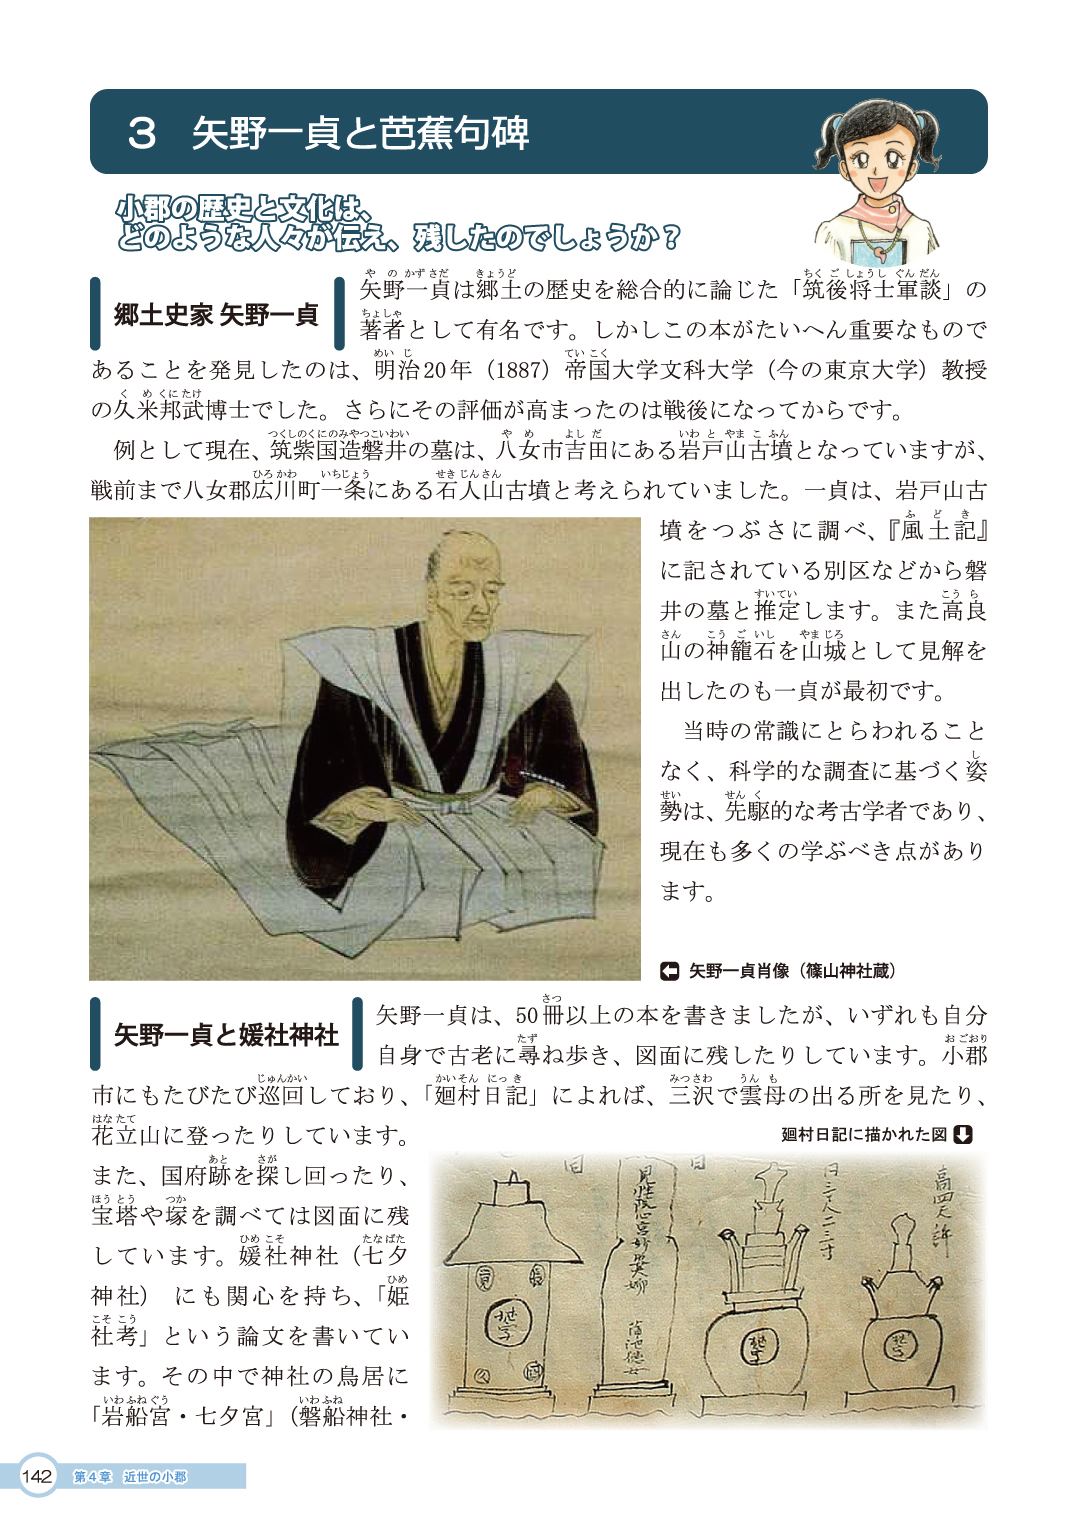 3 矢野一貞と芭蕉句碑
小郡の歴史と文化は、
どのような人々が伝え、残したのでしょうか？
郷土史家 矢野一貞
矢野一貞は郷土の歴史を総合的に論じた「筑後将士軍談」の
著者として有名です。しかしこの本がたいへん重要なもので
あることを発見したのは、明治20年（1887）帝国大学文科大学（今の東京大学）教授
の久米邦武博士でした。さらにその評価が高まったのは戦後になってからです。
例として現在、筑紫国造磐井の墓は、八女市吉田にある岩戸山古墳となっていますが、
戦前まで八女郡広川町一条にある石人山古墳と考えられていました。一貞は、岩戸山古
墳をつぶさに調べ、『風土記』
に記されている別区などから磐
井の墓と推定します。また高良
山の神籠石を山城として見解を
出したのも一貞が最初です。
当時の常識にとらわれること
なく、科学的な調査に基づく姿
勢は、先駆的な考古学者であり、
現在も多くの学ぶべき点があり
ます。
矢野一貞肖像（篠山神社蔵）
矢野一貞と媛社神社
矢野一貞は、50冊以上の本を書きましたが、いずれも自分
自身で古老に尋ね歩き、図面に残したりしています。小郡
市にもたびたび巡回しており、「廻村日記」によれば、三沢で雲母の出る所を見たり、
花立山に登ったりしています。
また、国府跡を探し回ったり、
宝塔や塚を調べては図面に残
しています。媛社神社（七夕
神社） にも関心を持ち、「姫
社考」という論文を書いてい
ます。その中で神社の鳥居に
「岩船宮・七夕宮」（磐船神社・
廻村日記に描かれた図
142 第4章 近世の小郡